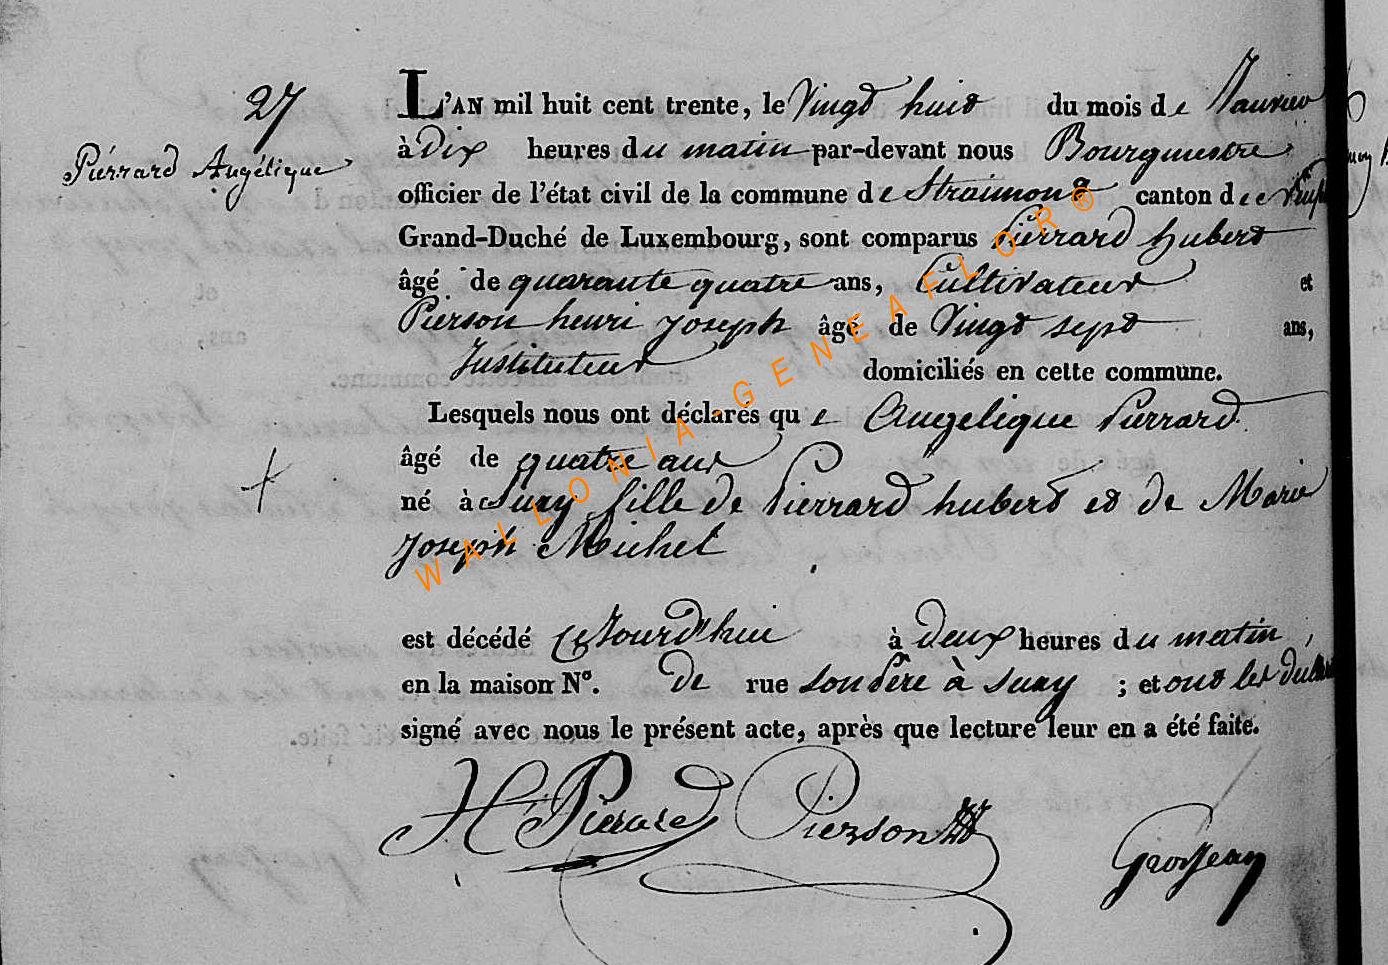 27
Piérrard Angélique
L'AN mil huit cent trente, le Vingt huit du mois de Janvier
à Dix heures du matin par-devant nous Bourgmestre
officier de l'état civil de la commune de Straimont canton de
Grand-Duché de Luxembourg, sont comparus Pierrard hubert
âgé de quarante quatre ans, Cultivateur et
Pierson henri Joseph âgé de Vingt sept ans,
Instituteur domiciliés en cette commune.
Lesquels nous ont déclarés que Angelique Pierrard
âgé de quatre ans
né à Suxy fille de Pierrard hubert et de Marie
Joseph Michel
est décédé cejourd'hui à deux heures du matin,
en la maison N°. De rue son Père à Suxy ; et ont les
signé avec nous le présent acte, après que lecture leur en a été faite.
H Pierard Pierson Grosjean
WALLONIA-GENEAFLOR®